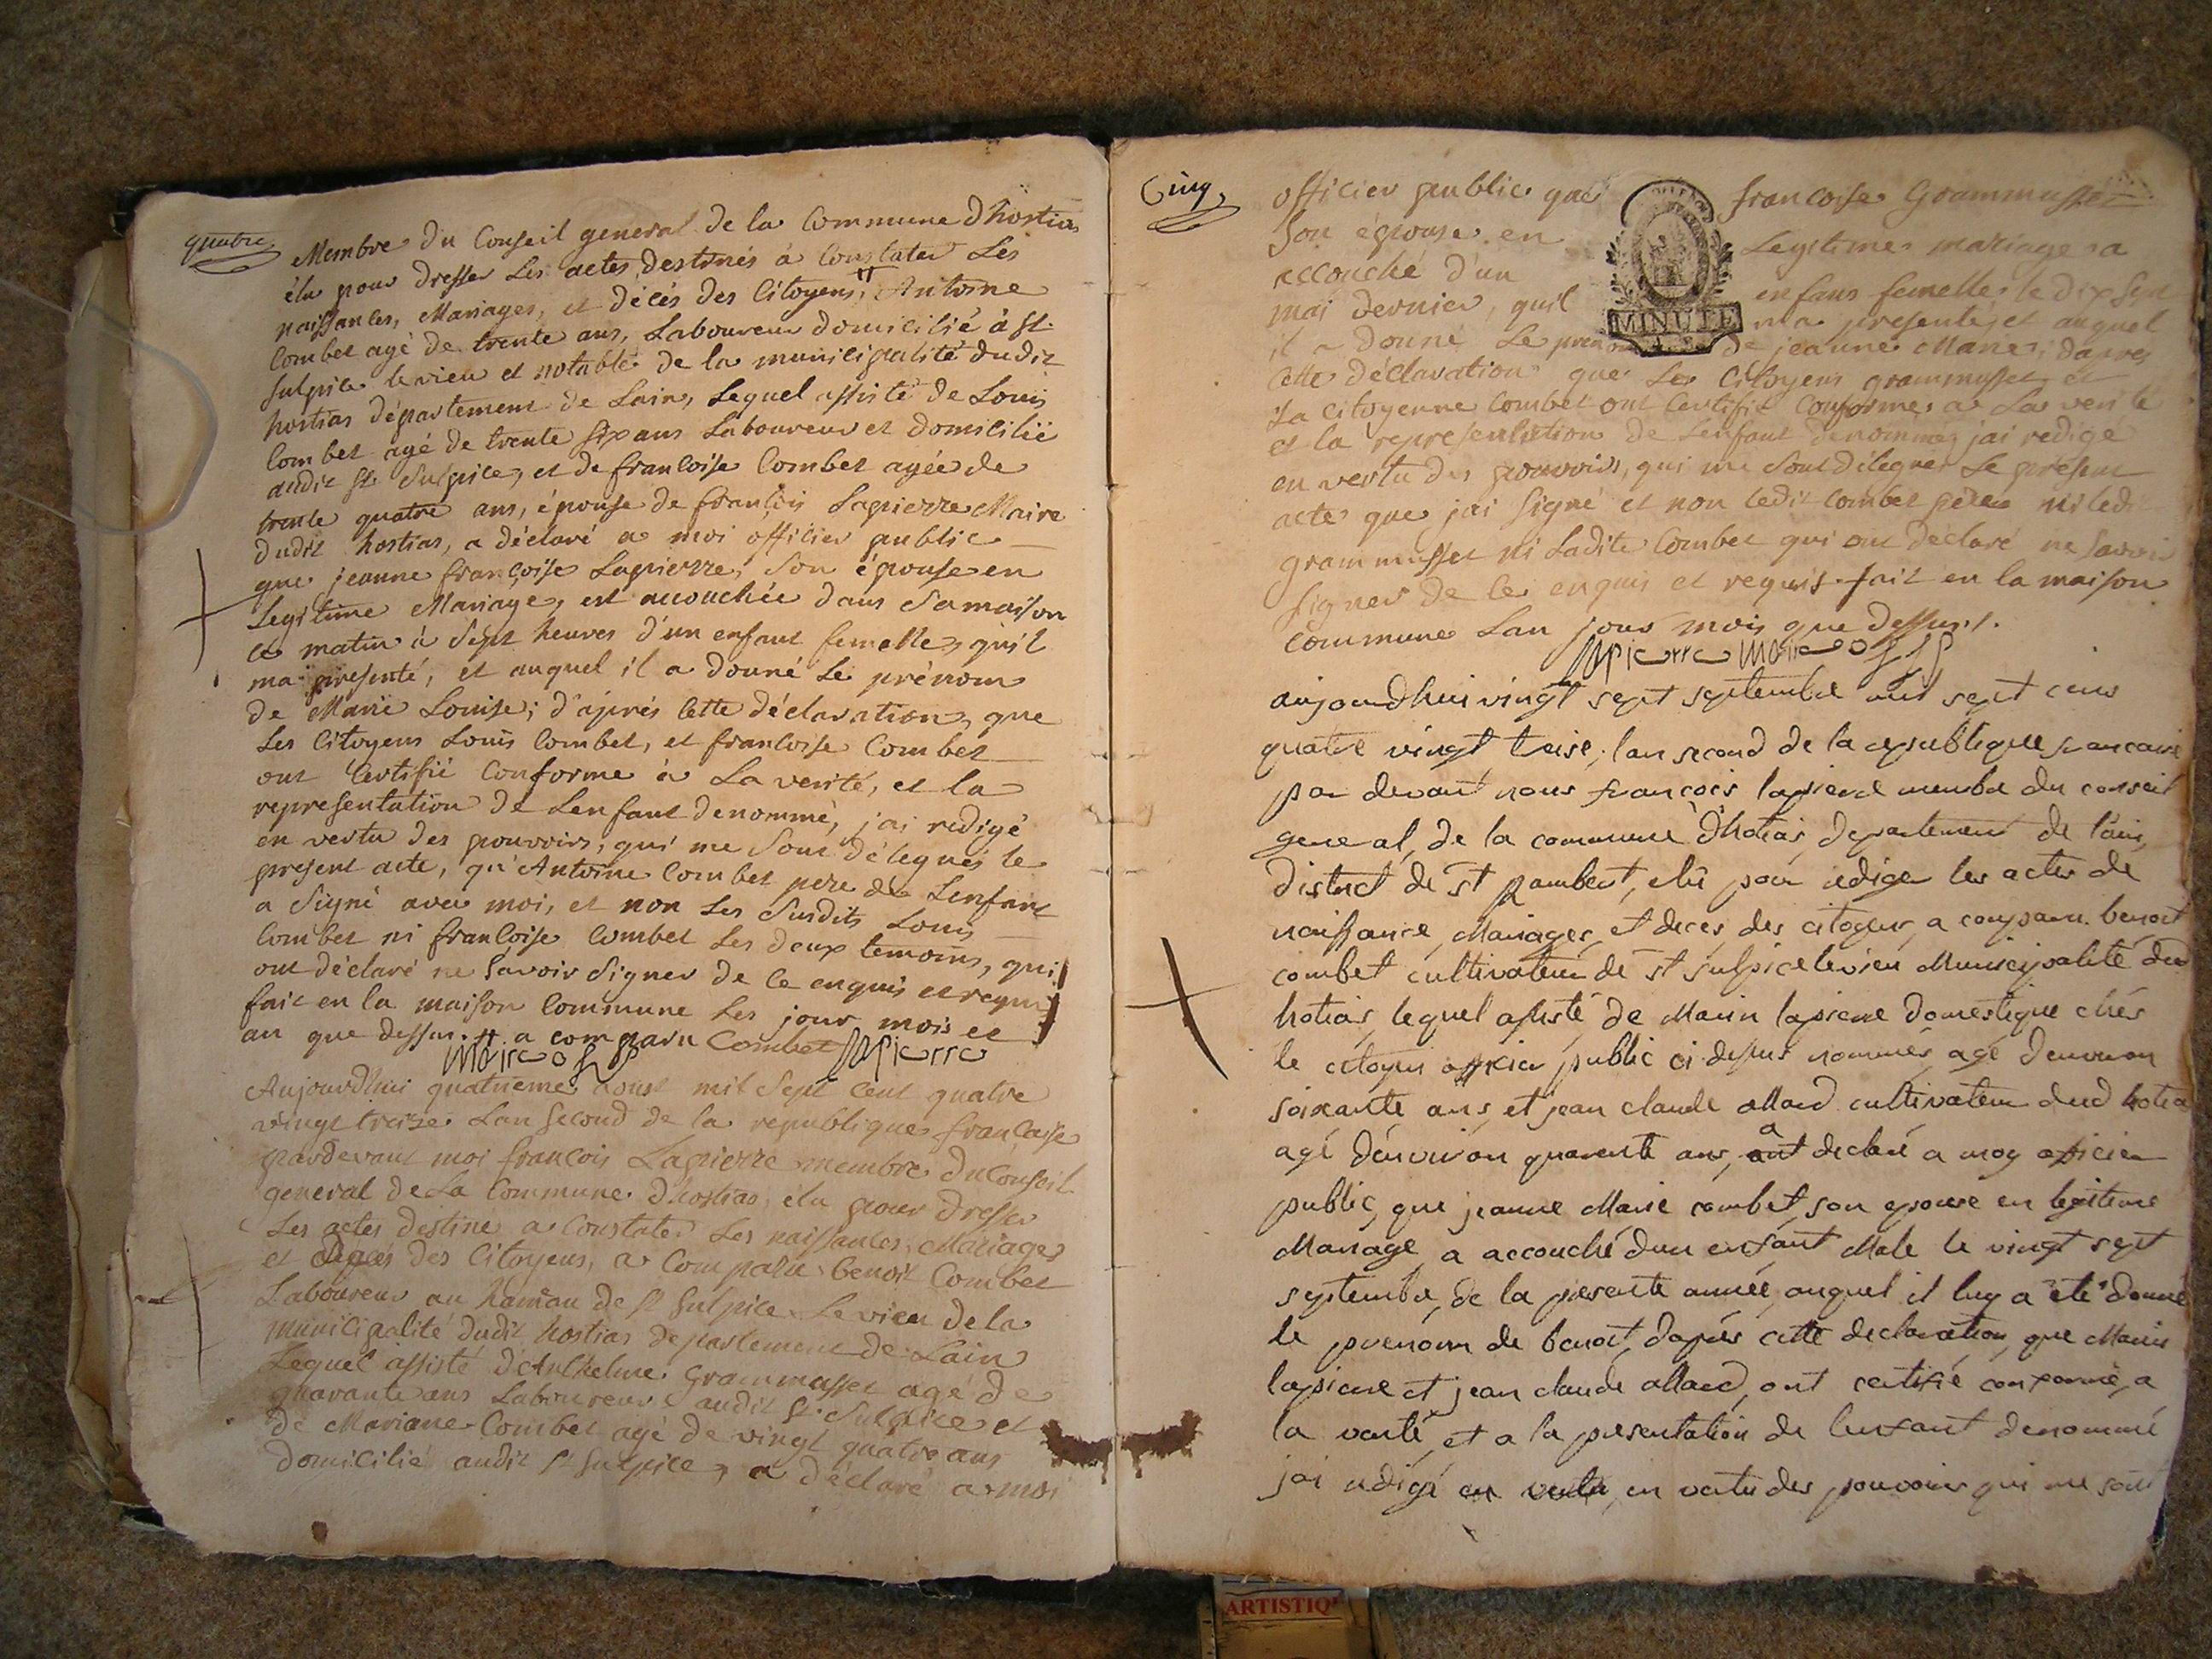 quatre
Membre du Conseil general de la Commune dhostias
élu pour dresser Les actes destinés à Constater Les
naissances, Mariages, et décés des Citoyens, # Antoine
Combet agé de trente ans, Laboureur domicilié à St.
Sulpice levieu et notable de la municipalité dudit
hostias département de Lain, Lequel assisté de Louis
Combet agé de trente six ans Laboureur et domicilié
audit St Sulpice, et de francoise Combet agée de
trente quatre ans, épouse de françois Lapierre Maire
dudit hostias, a déclaré a moi officier public
que jeanne françoise Lapierre, Son épouse en
Legitime Mariage, est accouchée dans Sa maison
ce matin à Sept heures d'un enfant femelle, qu'il
ma presenté, et auquel il a donné Le prénom
de Marie Louise; d'après Cette déclaration, que
Les Citoyens Louis Combet, et francoise Combet
ont Certifié Conforme à La verité, et la
representation de Lenfant denommé, j'ai redigé
en vertu des pouvoirs, qui me Sont délegués le
present acte, qu'Antoine Combet pere de Lenfant
a Signé avec moi, et non Les Susdits Louis
Combet ni françoise Combet Les deux temoins, qui
ont déclaré ne Savoir Signer de Ce enquis et requis
fait en la maison Commune Les jour mois et
an que dessus. # a comparu Combet Lapierre
Maire off p
Aujourdhui quatrieme aoust mil Sept Cent quatre
vingt treize Lan Second de la republique francaise
pardevant moi françois Lapierre membre du Conseil
general de La Commune dhostias, élu pour dresser
Les actes destiné a Constater Les naissances, Mariages
et décés des Citoyens, a Comparu benoit Combet
Laboureur au hamau de St Sulpice Le vieu de la
municipalité dudit hostias departement de Lain
Lequel assisté d'Anthelme Grammusset agé de
quarante ans Laboureur audit St. Sulpice et
de Mariane Combet agé de vingt quatre ans
domicilié audit St Sulpice, a déclaré a moi
Cinq
officier public que francoise Grammusset
Son épouse en Legitime mariage a
accouché d'un enfans femelle, le dix Sept
mai dernier, quil ma presenté, et auquel
il a donné Le prenom de jeanne Marie; dapres
Cette déclaration que Les Citoyens grammusset et
La Citoyenne Combet ont Certifié Conforme a La verité
et la representation de Lenfant denommé, jai redigé
en vertu des pouvoirs, qui me Sont délegués Le present
acte que jai Signé et non ledit Combet pere ni ledit
grammusset ni Ladite Combet qui ont déclaré ne Savoir
Signer de Ce enquis et requis. fait en la maison
Commune Lan jour mois que dessus.
MINUTE
Lapierre Maire off p
aujourdhui vingt sept septembre mil sept cens
quatre vingt treise, lan second de la republique francaise
par devant nous francois lapierre membre du conseil
general, de la commune d'hotias, departement de l'ain,
district de st rambert, elû pour rediger les actes de
naissance, Mariages, et deces, des citoyens, a comparu benoit
combet cultivateur de st sulpice levieu Municipalité dud
hotias, lequel assisté de Marin lapierre domestique chés
le citoyen officier public ci dessus nommés, agé denviron
soixante ans, et jean claude allard cultivateur dud hotia
agé d'environ quarente ans, a ont declaré a moy officier
public, que jeanne Marie combet, son epouse en legitime
Mariage, a accouché dun enfant Male le vingt sept
septembre, de la presente année, auquel il luy a été donné
le prenom de benoit, d'après cette declaration, que Marin
lapierre et jean claude allard, ont certifié conforme, a
la verité, et a la presentation de lenfant denommé
jai redigé en vertu, en vertu des pouvoirs qui me sont
ARTISTIQ